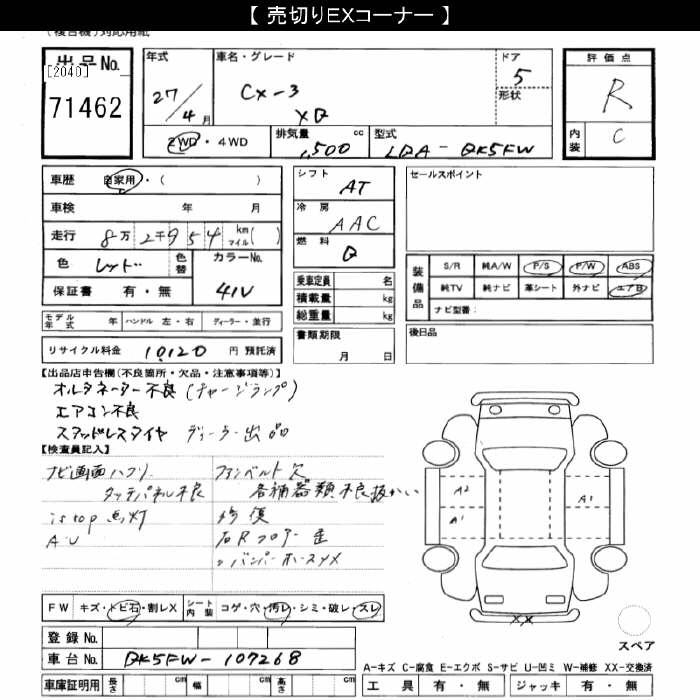 【 売切りEXコーナー 】
(複合機)対応用紙
出品No.
[2040]
71462
年式
27/4月
車名・グレード
CX-3
XD
ドア
5
形状
評価点
R
内装
C
2WD・4WD
排気量 cc
1,500
型式
LDA-DK5FW
車歴 自家用・( )
車検 年 月
走行 8万2千954 km マイル( )
色 レッド
色替
カラーNo.
41V
保証書 有・無
シフト
AT
冷房
AAC
燃料
D
乗車定員 名
積載量 kg
総重量 kg
書類期限
月 日
セールスポイント
装備品
S/R 純A/W P/S P/W ABS
純TV 純ナビ 革シート 外ナビ エアB
ナビ型番:
後日品
モデル年式 年 ハンドル 左・右 ディーラー・並行
リサイクル料金 10120 円 預託済
【出品店申告欄(不良箇所・欠品・注意事項等)】
オルタネーター不良(チャージランプ)
エアコン不良
スタッドレスタイヤ ディーラー出品
【検査員記入】
ナビ画面ハクリ
タッチパネル不良
i stop 点灯
A・U
ファンベルト欠
各補器類不良抜かい
修復
右Rフロアー歪
〃バンパーホースメX
A2
A1
A1
XX
スペア
FW キズ・トビ石・割レX シート内装 コゲ・穴・汚レ・シミ・破レ・スレ
登録No.
車台No. DK5FW-107268
車庫証明用 長さ cm 幅 cm 高さ cm
A-キズ C-腐食 E-エクボ S-サビ U-凹ミ W-補修 XX-交換済
工具 有・無 ジャッキ 有・無